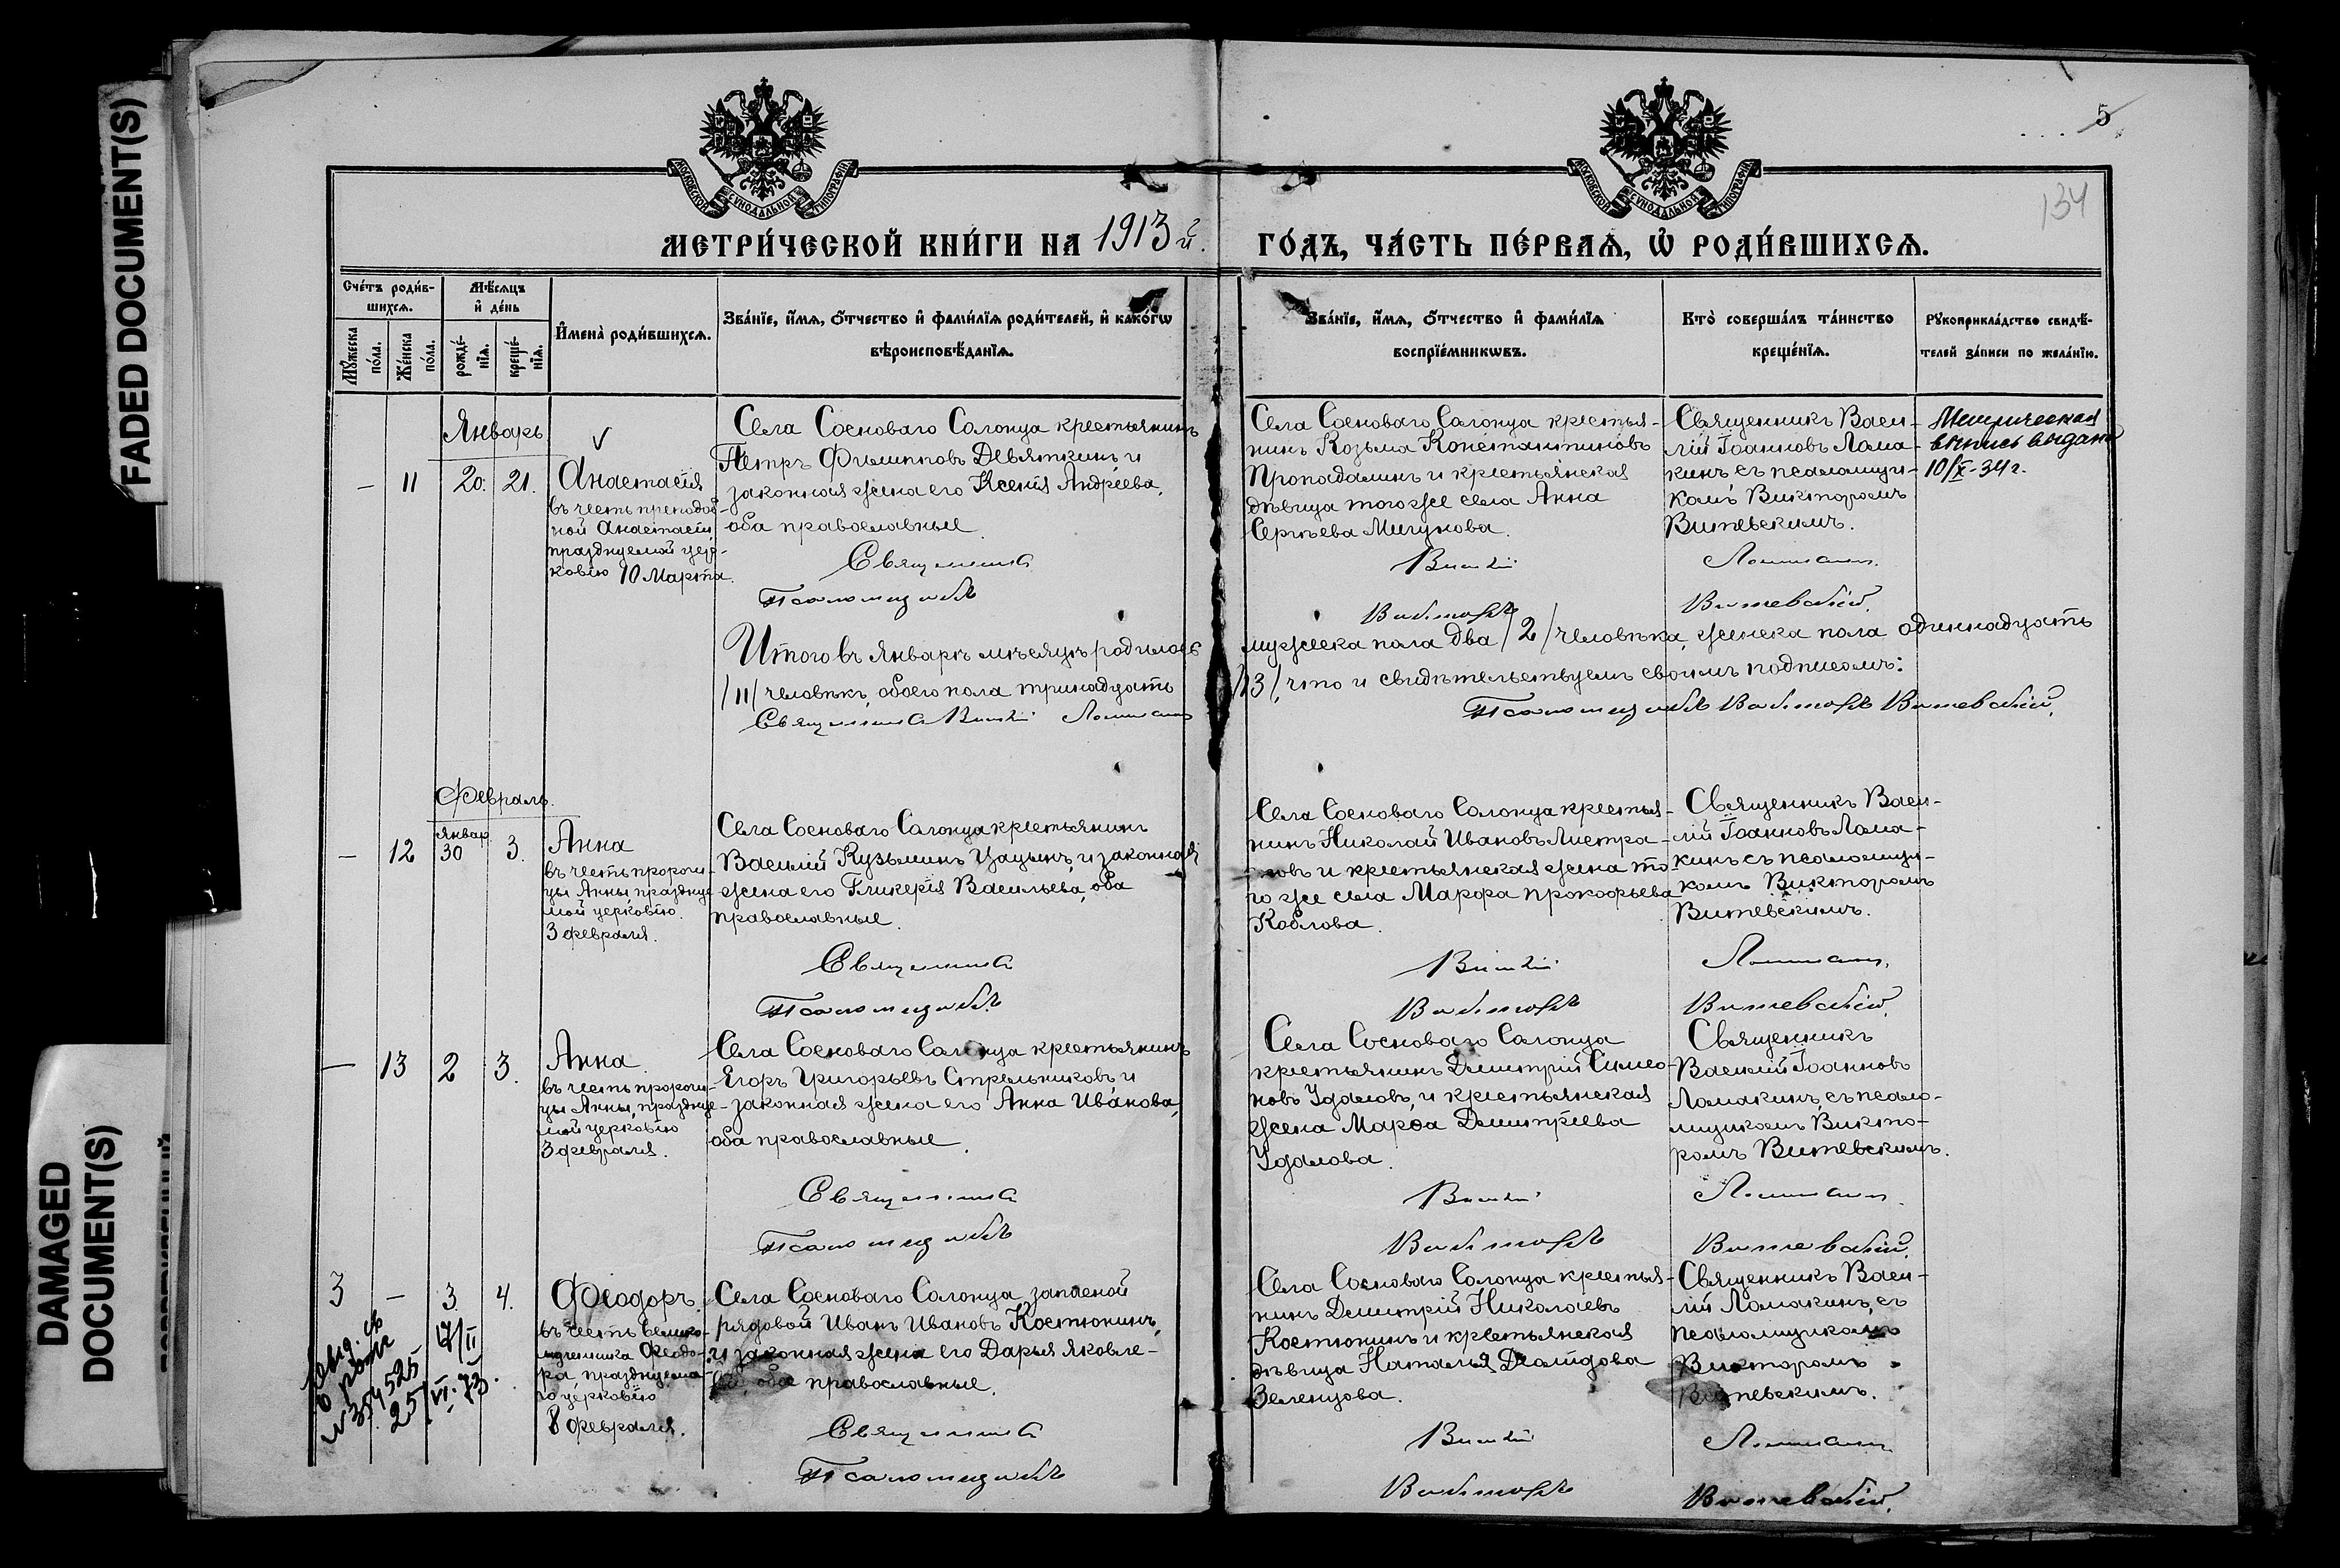 FADED DOCUMENT(S)
DAMAGED
DOCUMENT(S)
МОСКОВСКОЙ СУНОДАЛЬНОЙ ТИПОГРАФІИ
МОСКОВСКОЙ СУНОДАЛЬНОЙ ТИПОГРАФІИ
5
134
МЕТРИ́ЧЕСКОЙ КНИ́ГИ НА 1913 й.
ГО́ДЪ, ЧА́СТЬ ПЕ́РВАѦ, Ѡ҆ РОДИ́ВШИХСѦ.
Сче́тъ роди́в-
шихсѧ.
Мѣ́сѧцъ
и҆ де́нь
Мꙋ́жеска
по́ла.
Же́нска
по́ла.
рожде́-
нїѧ.
креще́-
нїѧ.
И҆мена̀ роди́вшихсѧ.
Зва́нїе, и҆́мѧ, ѻ҆́тчество и҆ фами́лїѧ роди́телей, и҆ како́гѡ
вѣроисповѣ́данїѧ.
Зва́нїе, и҆́мѧ, ѻ҆́тчество и҆ фами́лїѧ
воспрїе́мникѡвъ.
Кто̀ соверша́лъ та́инство
креще́нїѧ.
Рꙋкоприкла́дство свидѣ́-
телей за́писи по жела́нїю.
Январь
— 11 20. 21.
Анастасія
въ честь преподоб-
ной Анастасіи,
празднуемой цер-
ковію 10 Марта.
Села Сосноваго Солонца крестьянинъ
Петръ Филипповъ Девяткинъ и
законная жена его Ксенія Андреева,
оба православные.
Священникъ
Псаломщикъ
Села Сосноваго Солонца крестья-
нинъ Козьма Константиновъ
Пропадалинъ и крестьянская
дѣвица того же села Анна
Сергѣева Мигунова.
Василій
Викторъ
Священникъ Васи-
лій Іоанновъ Лома-
кинъ съ псаломщи-
комъ Викторомъ
Витевскимъ.
Ломакинъ.
Витевскій.
Метрическая
выпись выдана
10/X-34 г.
Итого въ Январѣ мѣсяцѣ родилось
мужеска пола два /2/ человѣка, женска пола одиннадцать
/11/ человѣкъ, обоего пола тринадцать
/13/, что и свидѣтельствуемъ своимъ подписомъ:
Священникъ Василій Ломакинъ
Псаломщикъ Викторъ Витевскій.
Февраль.
— 12 Январ. 30 3.
Анна
въ честь пророчи-
цы Анны, праздуе-
мой церковію.
3 февраля.
Села Сосноваго Солонца крестьянинъ
Василій Кузьминъ Цацынъ и законная
жена его Гликерія Васильева, оба
православные.
Священникъ
Псаломщикъ
Села Сосноваго Солонца крестья-
нинъ Николай Ивановъ Листра-
товъ и крестьянская жена то-
го же села Марѳа Прокофьева
Козлова.
Василій
Викторъ
Священникъ Васи-
лій Іоанновъ Лома-
кинъ съ псаломщи-
комъ Викторомъ
Витевскимъ.
Ломакинъ.
Витевскій.
— 13 2 3.
Анна
въ честь пророчи-
цы Анны, праздуе-
мой церковію
3 февраля.
Села Сосноваго Солонца крестьянинъ
Егоръ Григорьевъ Стрельниковъ и
законная жена его Анна Иванова,
оба православные.
Священникъ
Псаломщикъ
Села Сосноваго Солонца
крестьянинъ Димитрій Симео-
новъ Удаловъ, и крестьянская
жена Марѳа Димитріева
Удалова.
Василій
Викторъ
Священникъ
Василій Іоанновъ
Ломакинъ, съ псало-
мщикомъ Викто-
ромъ Витевскимъ.
Ломакинъ.
Витевскій.
3 — 3 4.
Ѳеодоръ
въ честь велико-
мученика Ѳеодо-
ра, празднуема-
го церковію
8 февраля.
Села Сосноваго Солонца запасной
рядовой Иванъ Ивановъ Костюнинъ,
и законная жена его Дарья Яковле-
ва, оба православные.
Священникъ
Псаломщикъ
Села Сосноваго Солонца крестья-
нинъ Димитрій Николаевъ
Костюнинъ и крестьянская
дѣвица Наталья Давидова
Зеленцова.
Василій
Викторъ
Священникъ Васи-
лій Ломакинъ, съ
псаломщикомъ
Викторомъ
Витевскимъ.
Ломакинъ
Витевскій.
№ 354525
25/VI-73.